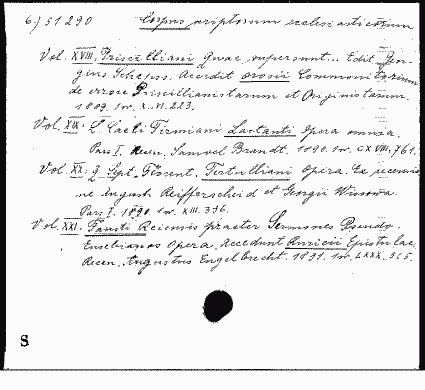 6.) 51290 Corpus scriptorum ecclesiasticorum
Vol. XVIII: Priscilliani quae supersunt... Edit. Geor-
gius Schepss. Accedit Orosii Commonitorium
de errore Priscillianistarum et Origenistarum.
1889. 1 w. X. VI. 223.
Vol. XIX: L. Caeli Firmiani Lactanti Opera omnia.
Pars I. Recen. Samuel Brandt. 1890. 1 w. CXVIII, 761.
Vol. XX: Q. Sept. Florent. Tertulliani Opera. Ex recensio
ne August. Reifferscheid et Georgii Wissowa.
Pars I. 1890. 1 w. XIII. 376.
Vol. XXI: Fausti Reiensis praeter Sermones Pseudo-
Eusebianos Opera. Accedunt Ruricii Epistulae.
Recen. Augustus Engelbrecht. 1891. 1 w. LXXX. 565.
S